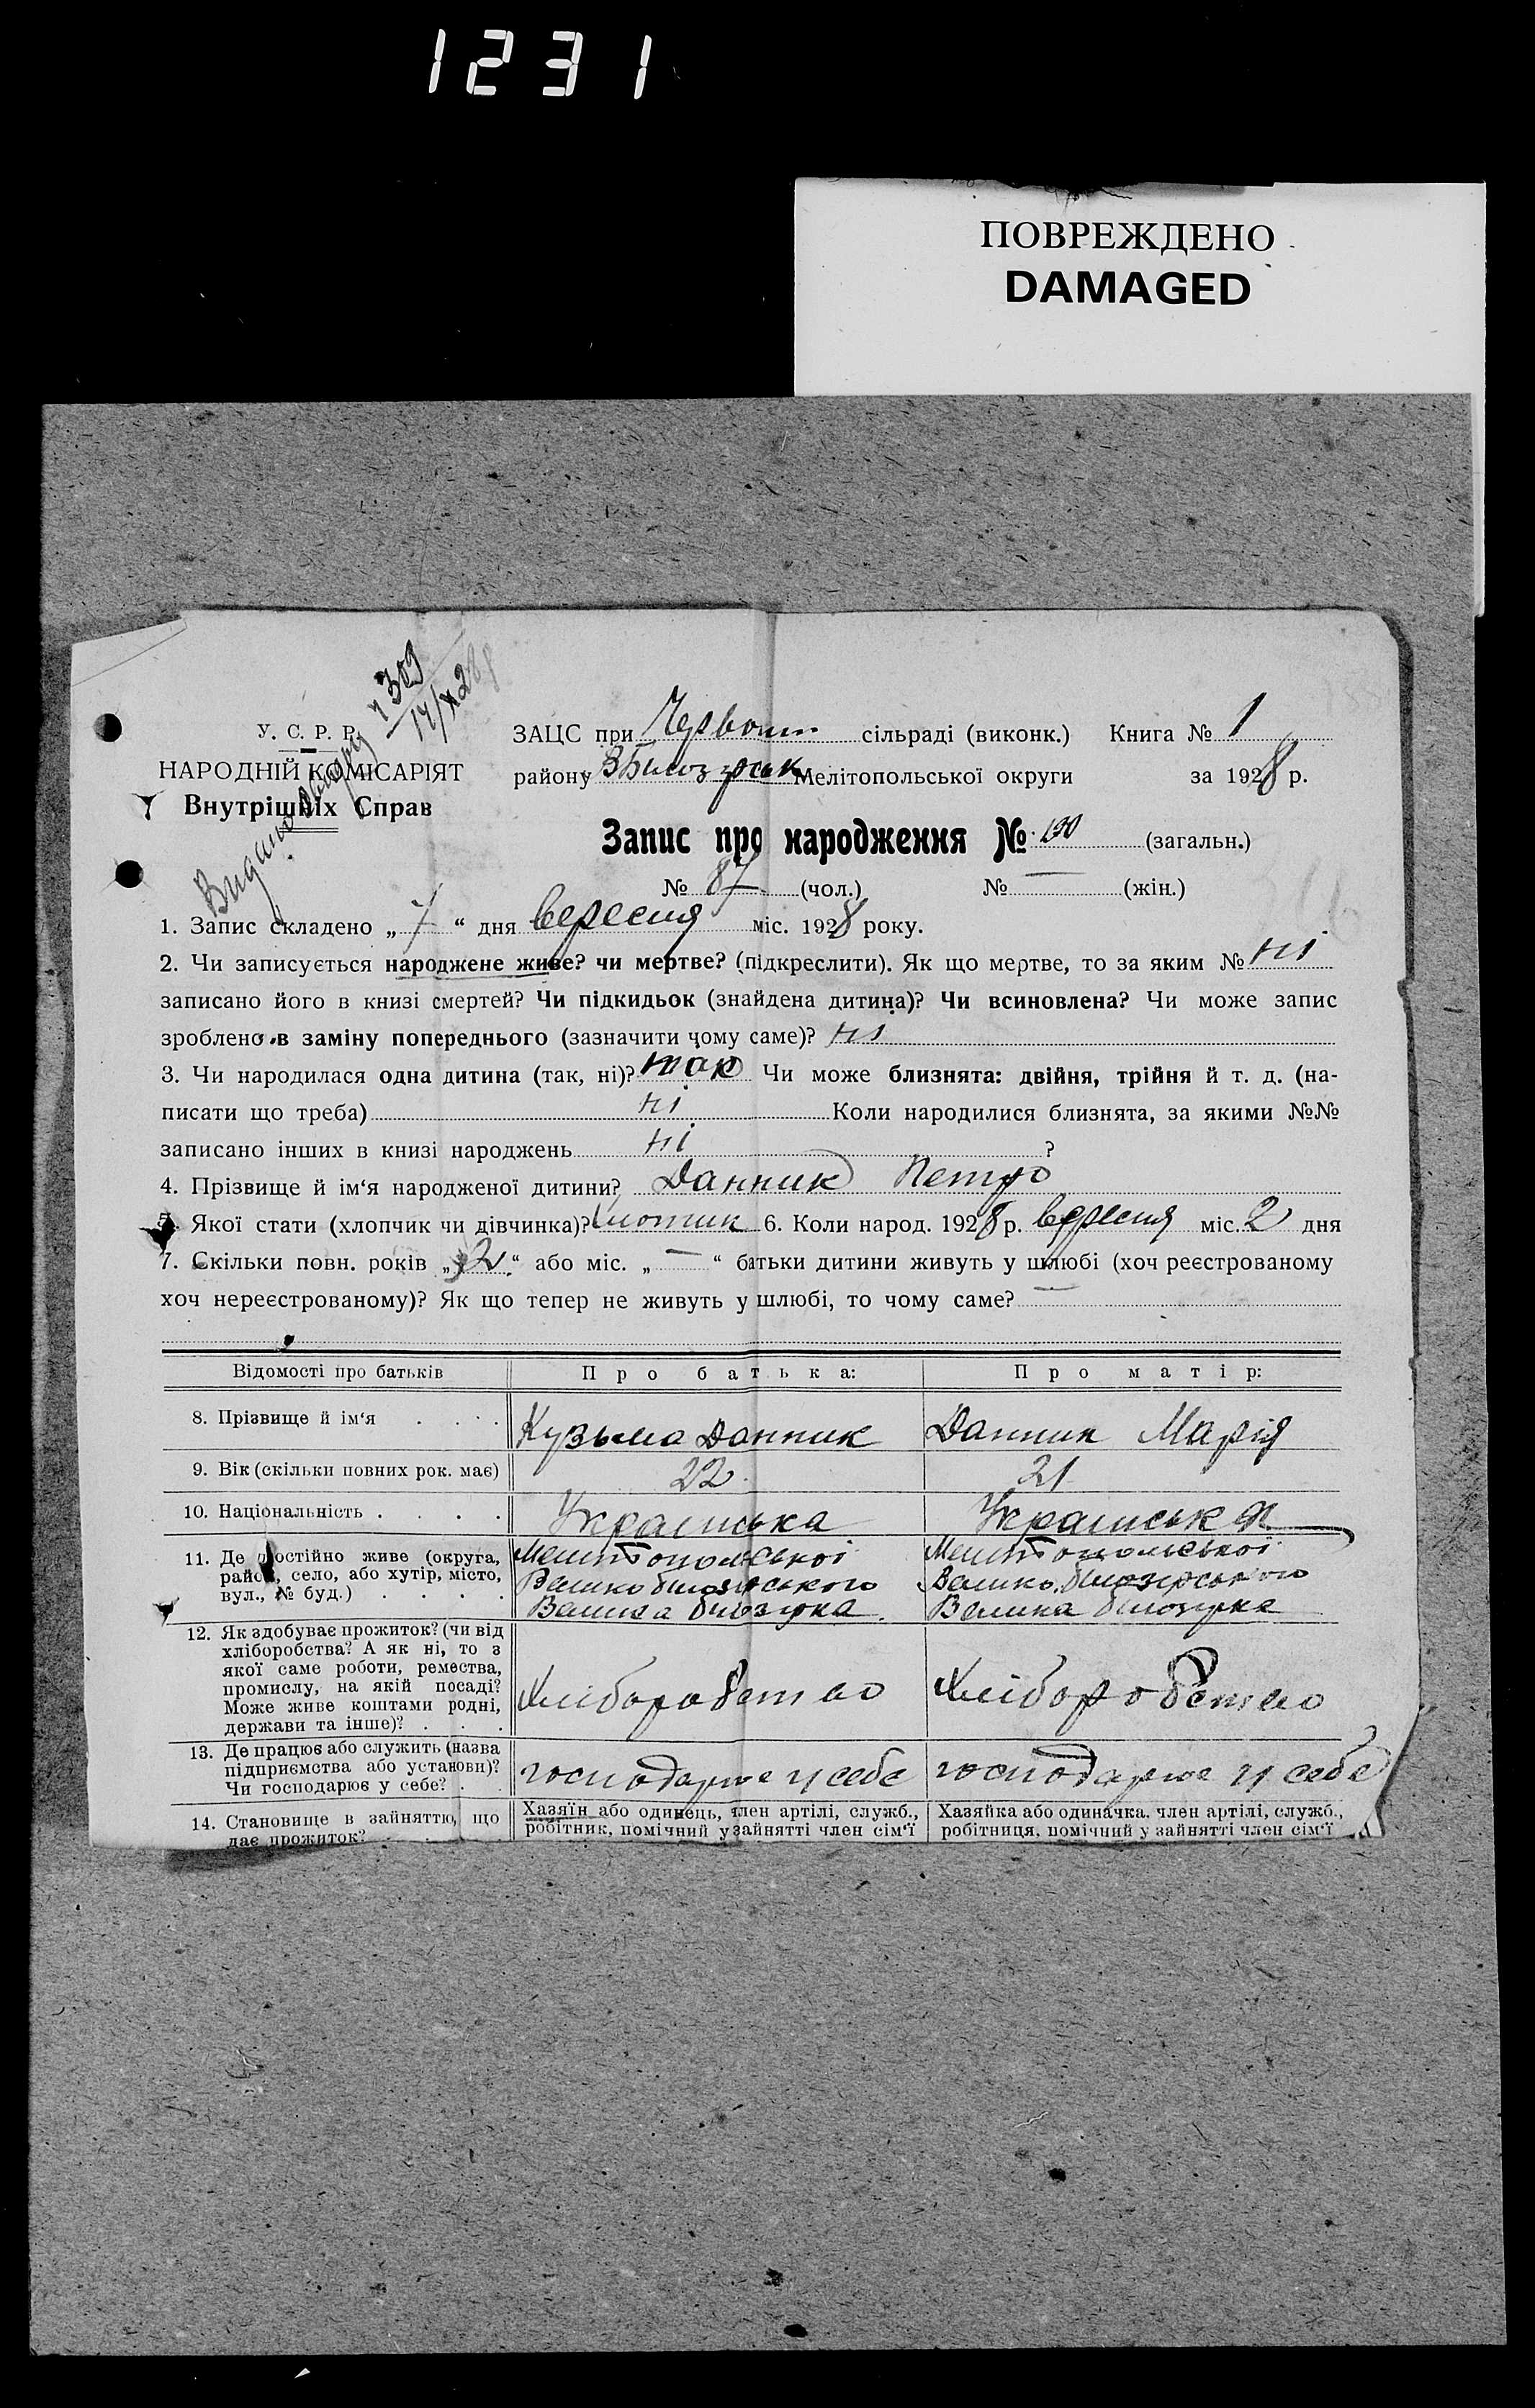 1231
ПОВРЕЖДЕНО
DAMAGED
Видано 309
17/X 28
У. С. Р. Р.
НАРОДНІЙ КОМІСАРІЯТ
Внутрішніх Справ
ЗАЦС при Червон сільраді (виконк.) Книга № 1
району ВБілозірськ Мелітопольської округи за 1928 р.
Запис про народження № 130 (загальн.)
№ 87 (чол.) № — (жін.)
1. Запис складено „7“ дня вересня міс. 1928 року.
2. Чи записується народжене живе? чи мертве? (підкреслити). Як що мертве, то за яким № ні
записано його в книзі смертей? Чи підкидьок (знайдена дитина)? Чи всиновлена? Чи може запис
зроблено в заміну попереднього (зазначити чому саме)? ні
3. Чи народилася одна дитина (так, ні)? так Чи може близнята: двійня, трійня й т. д. (на-
писати що треба) ні Коли народилися близнята, за якими №№
записано інших в книзі народжень ні ?
4. Прізвище й ім‘я народженої дитини? Данник Петро
5. Якої стати (хлопчик чи дівчинка)? Хлопчик 6. Коли народ. 1928 р. вересня міс. 2 дня
7. Скільки повн. років „2“ або міс. „—“ батьки дитини живуть у шлюбі (хоч реєстрованому
хоч нереєстрованому)? Як що тепер не живуть у шлюбі, то чому саме? —
Відомості про батьків Про батька: Про матір:
8. Прізвище й ім‘я Кузьма Данник Данник Марія
9. Вік (скільки повних рок. має) 22 21
10. Національність Українська Українськ
11. Де постійно живе (округа, Мелітопольської Мелітопольської
район, село, або хутір, місто, Великобілозірського Великобілозірського
вул., № буд.) Велика білозірка Велика білозірка
12. Як здобуває прожиток? (чи від
хліборобства? А як ні, то з
якої саме роботи, ремества,
промислу, на якій посаді? Хліборобство Хліборобство
Може живе коштами родні,
держави та інше)?
13. Де працює або служить (назва
підприємства або установи)? господарює у себе господарює у себе
Чи господарює у себе?
14. Становище в зайняттю, що Хазяїн або одинець, член артілі, служб., Хазяйка або одиначка, член артілі, служб.,
дає прожиток? робітник, помічний у зайнятті член сім‘ї робітниця, помічний у зайнятті член сім‘ї